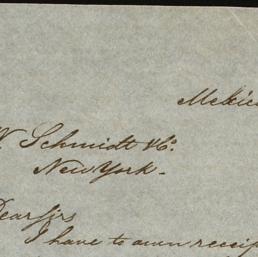 Mexico
W. Schmidt & Co.
New York.
Dear sirs
I have to own receip